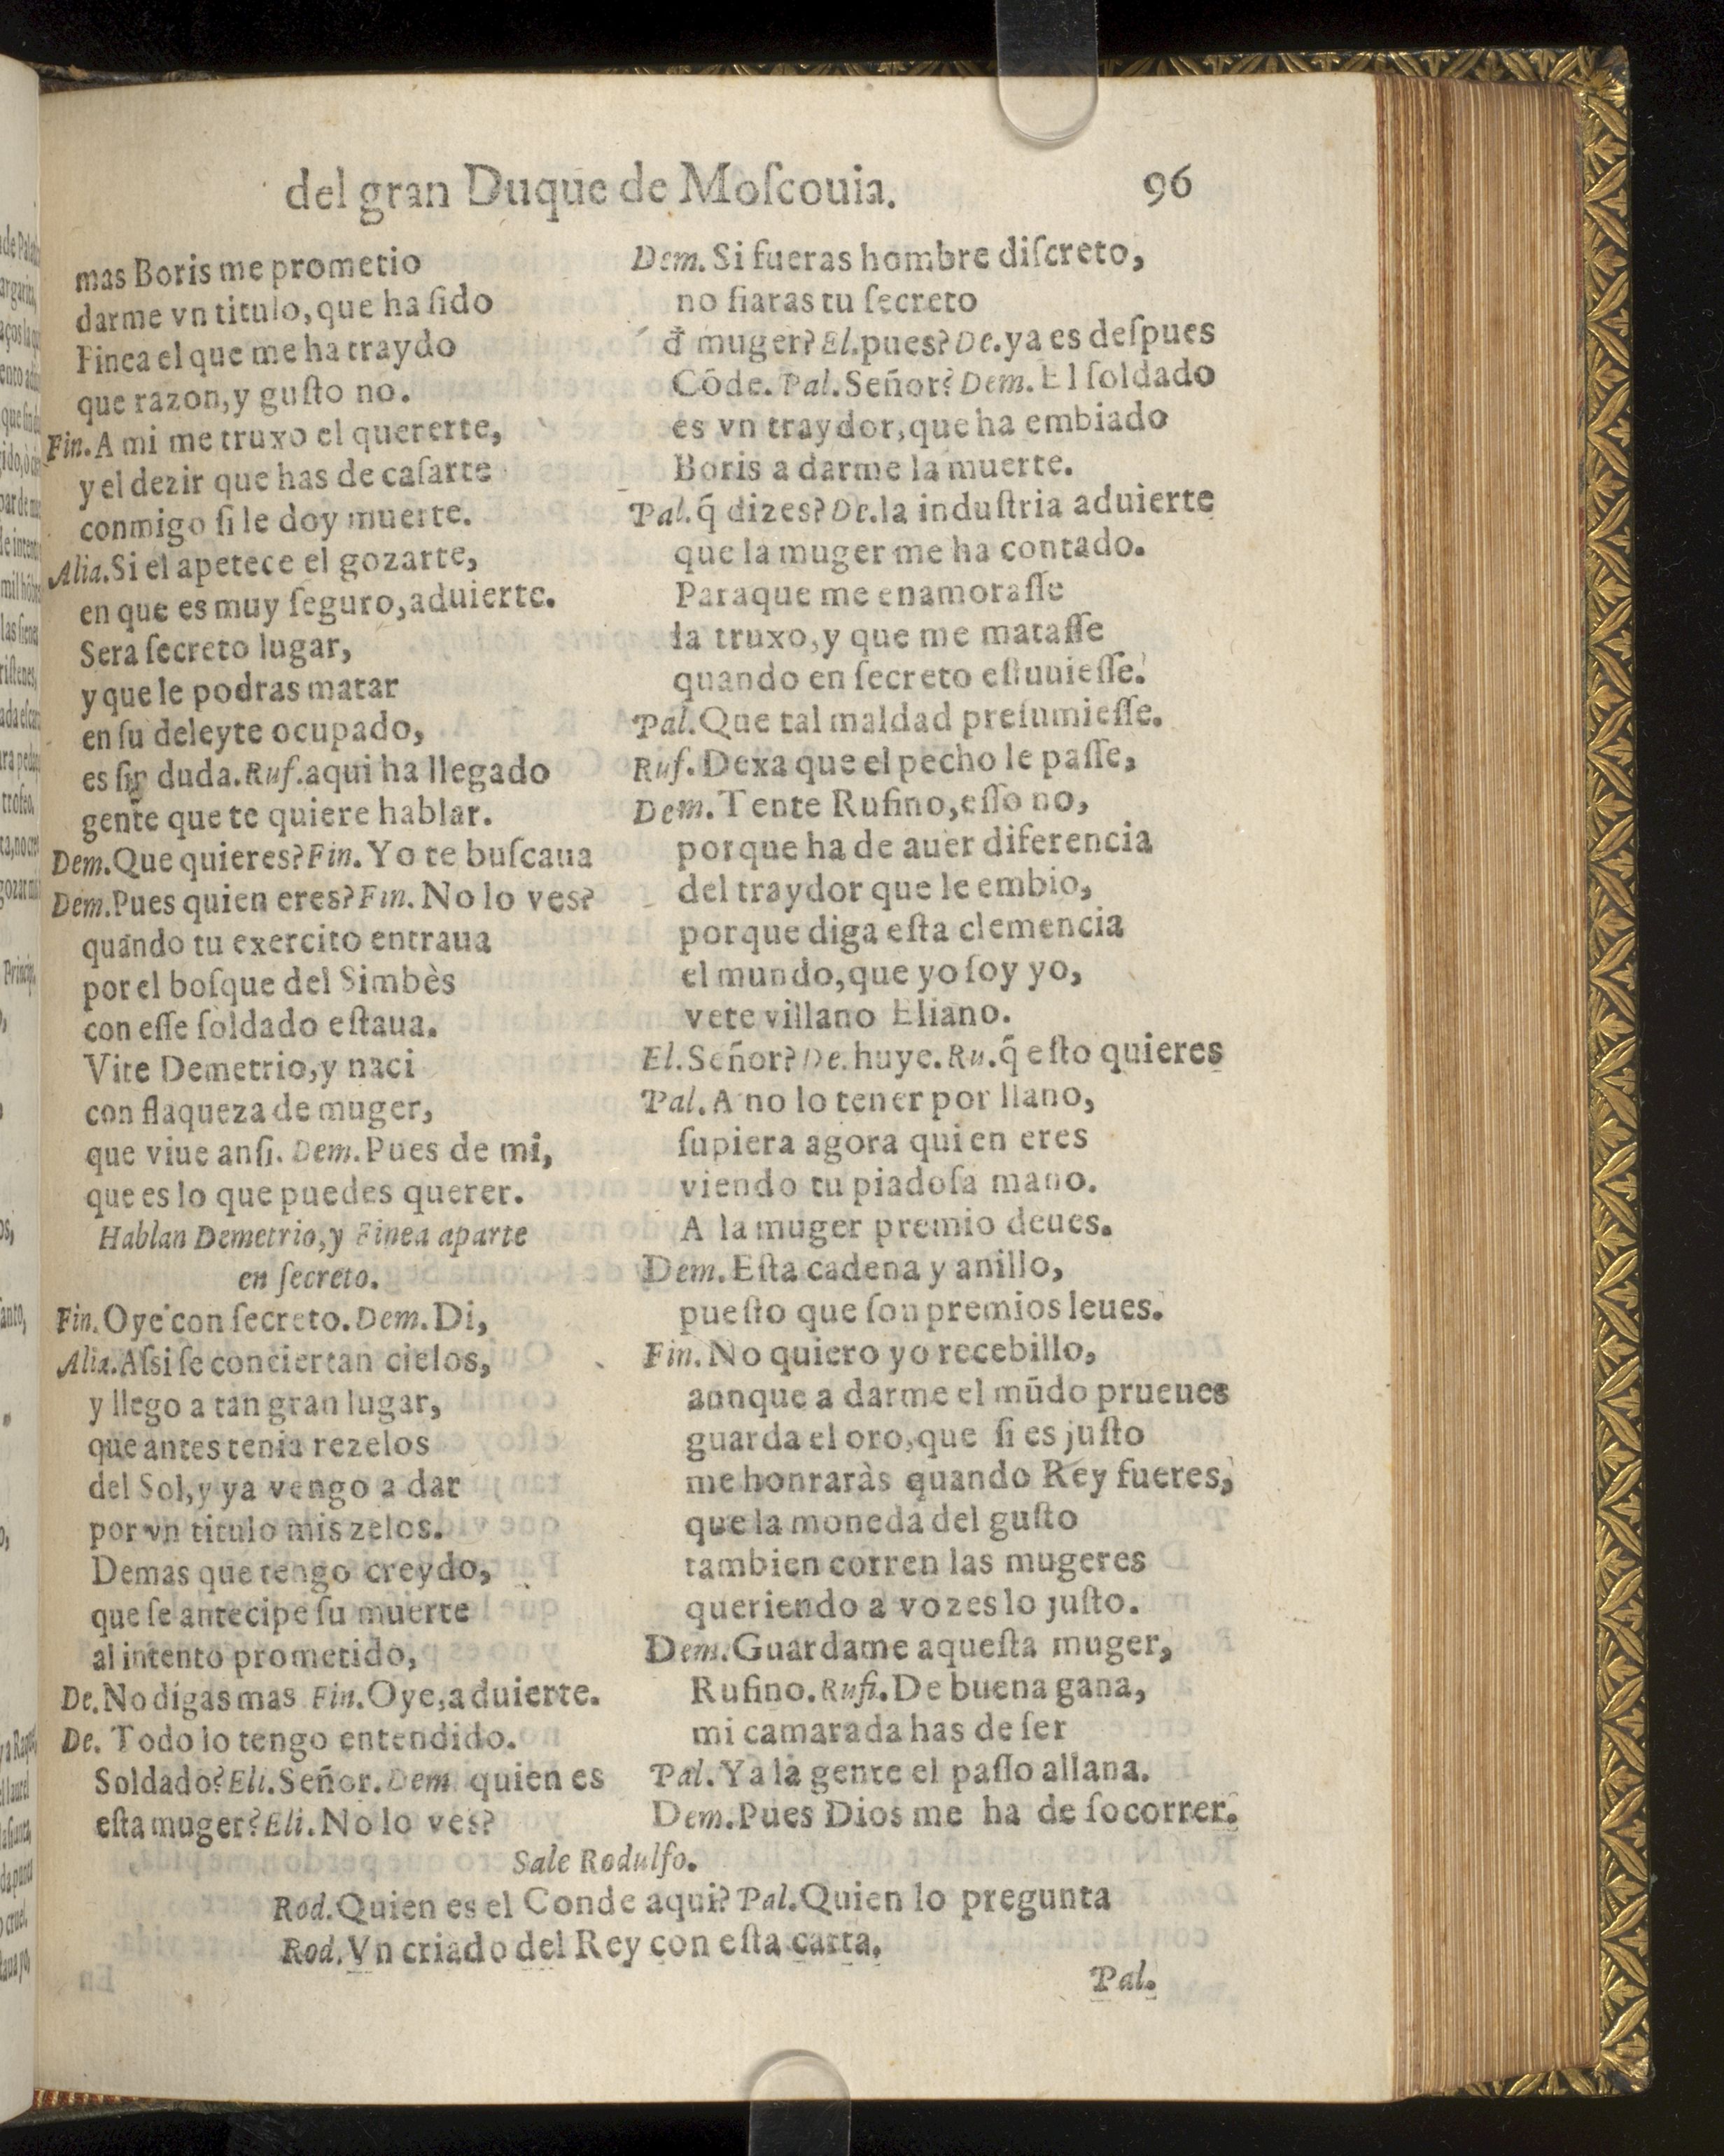 del gran Duque de Moſcouia.
96
mas Boris me prometio
darme vn titulo, que ha ſido
Finea el que me ha traydo
que razon, y guſto no.
Fin. A mi me truxo el quererte,
y el dezir que has de caſarte
conmigo ſi le doy muerte.
Alia. Si el apetece el gozarte,
en que es muy ſeguro, aduierte.
Sera ſecreto lugar,
y que le podras matar
en ſu deleyte ocupado,
es ſin duda. Ruf. aqui ha llegado
gente que te quiere hablar.
Dem. Que quieres? Fin. Yo te buſcaua
Dem. Pues quien eres? Fin. No lo ves?
quando tu exercito entraua
por el boſque del Simbès
con eſſe ſoldado eſtaua.
Vite Demetrio, y naci
con flaqueza de muger,
que viue anſi. Dem. Pues de mi,
que es lo que puedes querer.
Hablan Demetrio, y Finea aparte
en ſecreto.
Fin. Oye con ſecreto. Dem. Di,
Alia. Aſsi ſe conciertan cielos,
y llego a tan gran lugar,
que antes tenia rezelos
del Sol, y ya vengo a dar
por vn titulo mis zelos.
Demas que tengo creydo,
que ſe antecipe ſu muerte
al intento prometido,
De. No digas mas Fin. Oye, aduierte.
De. Todo lo tengo entendido.
Soldado? Eli. Señor. Dem quien es
eſta muger? Eli. No lo ves?
Dem. Si fueras hombre diſcreto,
no fiaras tu ſecreto
đ muger? El. pues? De. ya es deſpues
Cõde. Pal. Señor? Dem. El ſoldado
es vn traydor, que ha embiado
Boris a darme la muerte.
Pal. q̃ dizes? De. la induſtria aduierte
que la muger me ha contado.
Paraque me enamoraſſe
la truxo, y que me mataſſe
quando en ſecreto eſtuuieſſe.
Pal. Que tal maldad preſumieſſe.
Ruf. Dexa que el pecho le paſſe,
Dem. Tente Rufino, eſſo no,
porque ha de auer diferencia
del traydor que le embio,
porque diga eſta clemencia
el mundo, que yo ſoy yo,
vete villano Eliano.
El. Señor? De. huye. Ru. q̃ eſto quieres
Pal. A no lo tener por llano,
ſupiera agora quien eres
viendo tu piadoſa mano.
A la muger premio deues.
Dem. Eſta cadena y anillo,
pueſto que ſon premios leues.
Fin. No quiero yo recebillo,
aunque a darme el mũdo prueues
guarda el oro, que ſi es juſto
me honraràs quando Rey fueres,
que la moneda del guſto
tambien corren las mugeres
queriendo a vozes lo juſto.
Dem. Guardame aqueſta muger,
Rufino. Rufi. De buena gana,
mi camarada has de ſer
Pal. Ya la gente el paſſo allana.
Dem. Pues Dios me ha de ſocorrer.
Sale Rodulfo.
Rod. Quien es el Conde aqui? Pal. Quien lo pregunta
Rod. Vn criado del Rey con eſta carta,
Pal.